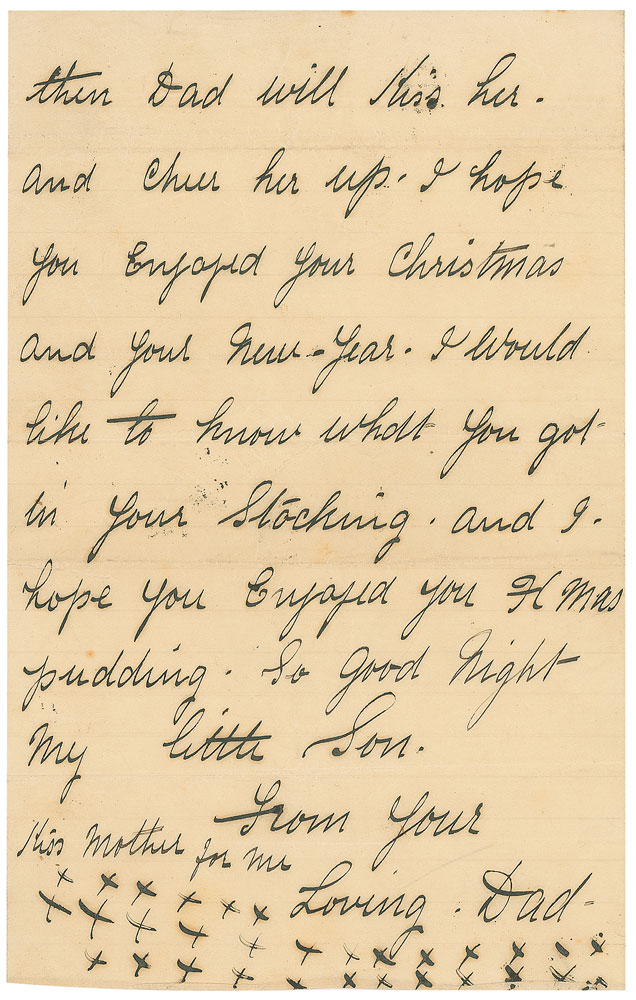 then Dad will Kiss. her.
and Cheer her up. I hope
you Enjoyed Your Christmas
and Your New-Year. I Would
like to know what You got
in Your Stocking. and I.
hope you Enjoyed you X Mas
pudding. So Good Night
My little Son.
From Your
Kiss Mother for Me
Loving. Dad-
x x x x x x
x x x x x x x x x x x x
x x x x x x x x x x x